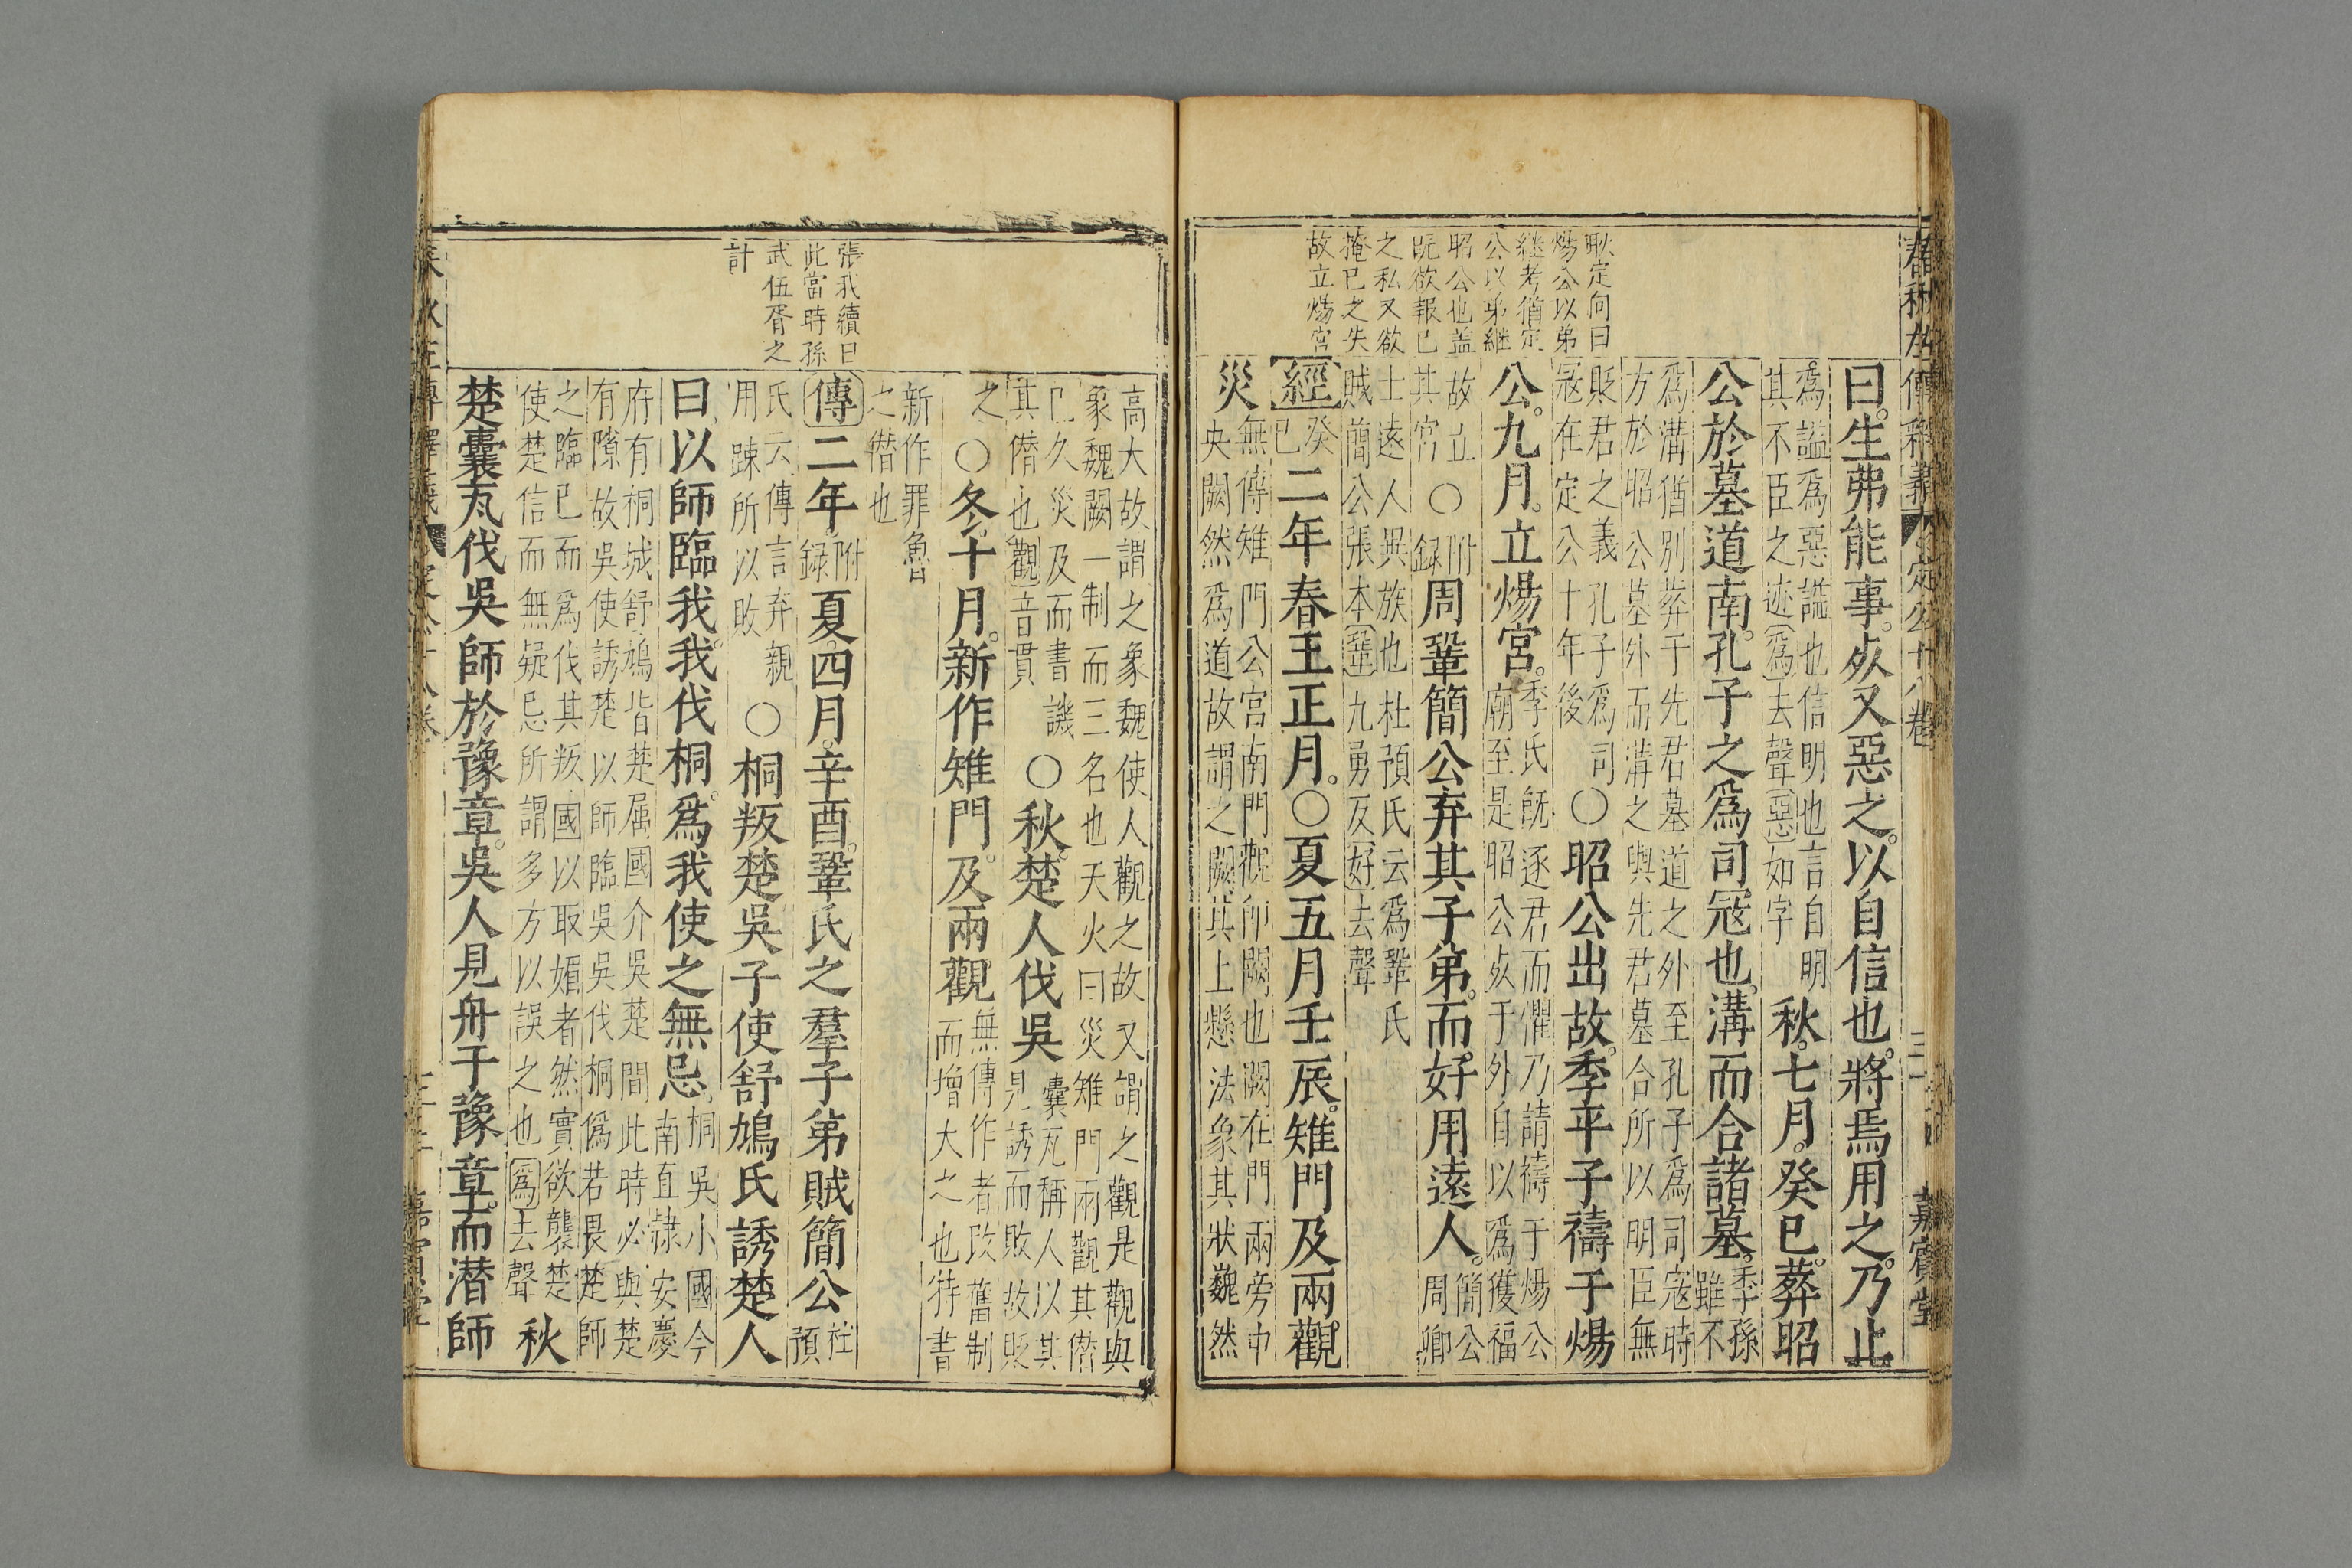 耿定向曰
煬公以弟
継考猶定
公以弟継
昭公也盖
既欲報已
之私又欲
掩已之失
故立煬宮
曰生弗能事死又惡之以自信也將焉用之乃止
為謚爲惡謚也信明也言自明
其不臣之迹爲去聲惡如字
秋七月癸巳葬昭
公於墓道南孔子之爲司冦也溝而合諸墓
季孫
雖不
爲溝猶別葬于先君墓道之外至孔子爲司寇時
方於昭公墓外而溝之與先君墓合所以明臣無
貶君之義孔子爲司
冦在定公十年後
○昭公出故季平子禱于煬
公九月立煬宮
季氏旣逐君而懼乃請禱于煬公
廟至是昭公死于外自以爲獲福
故立
其宮
○
附
録
周鞏簡公弃其子弟而好用遠人
簡公
周卿
士遠人異族也杜預氏云爲鞏氏
賊簡公張本鞏九勇反好去聲
經
癸
巳
二年春王正月○夏五月壬辰雉門及兩觀
災
無傳雉門公宮南門觀卽闕也闕在門兩旁中
央闕然爲道故謂之闕其上懸法象其狀巍然
高大故謂之象魏使人觀之故又謂之觀是觀與
象魏闕一制而三名也天火曰災雉門兩觀其僣
已久災及而書譏
其僣也觀音貫
○秋楚人伐吳
囊瓦稱人以其
見誘而敗故貶
之
○冬十月新作雉門及兩觀
無傳作者改舊制
而增大之也待書
新作罪魯
之僣也
張我續曰
此當時孫
武伍胥之
計
傳二年
附
録
夏四月辛酉鞏氏之羣子弟賊簡公
杜
預
氏云傳言弃親
用踈所以敗
○桐叛楚吳子使舒鳩氏誘楚人
曰以師臨我我伐桐爲我使之無忌
桐吳小國今
南直隷安慶
府有桐城舒鳩皆楚属國介吳楚間此時必與楚
有隙故吳使誘楚以師臨吳吳伐桐僞若畏楚師
之臨已而爲伐其叛國以取媚者然實欲襲楚
使楚信而無疑忌所謂多方以誤之也爲去聲
秋
楚囊瓦伐吳師於豫章吳人見舟于豫章而潜師